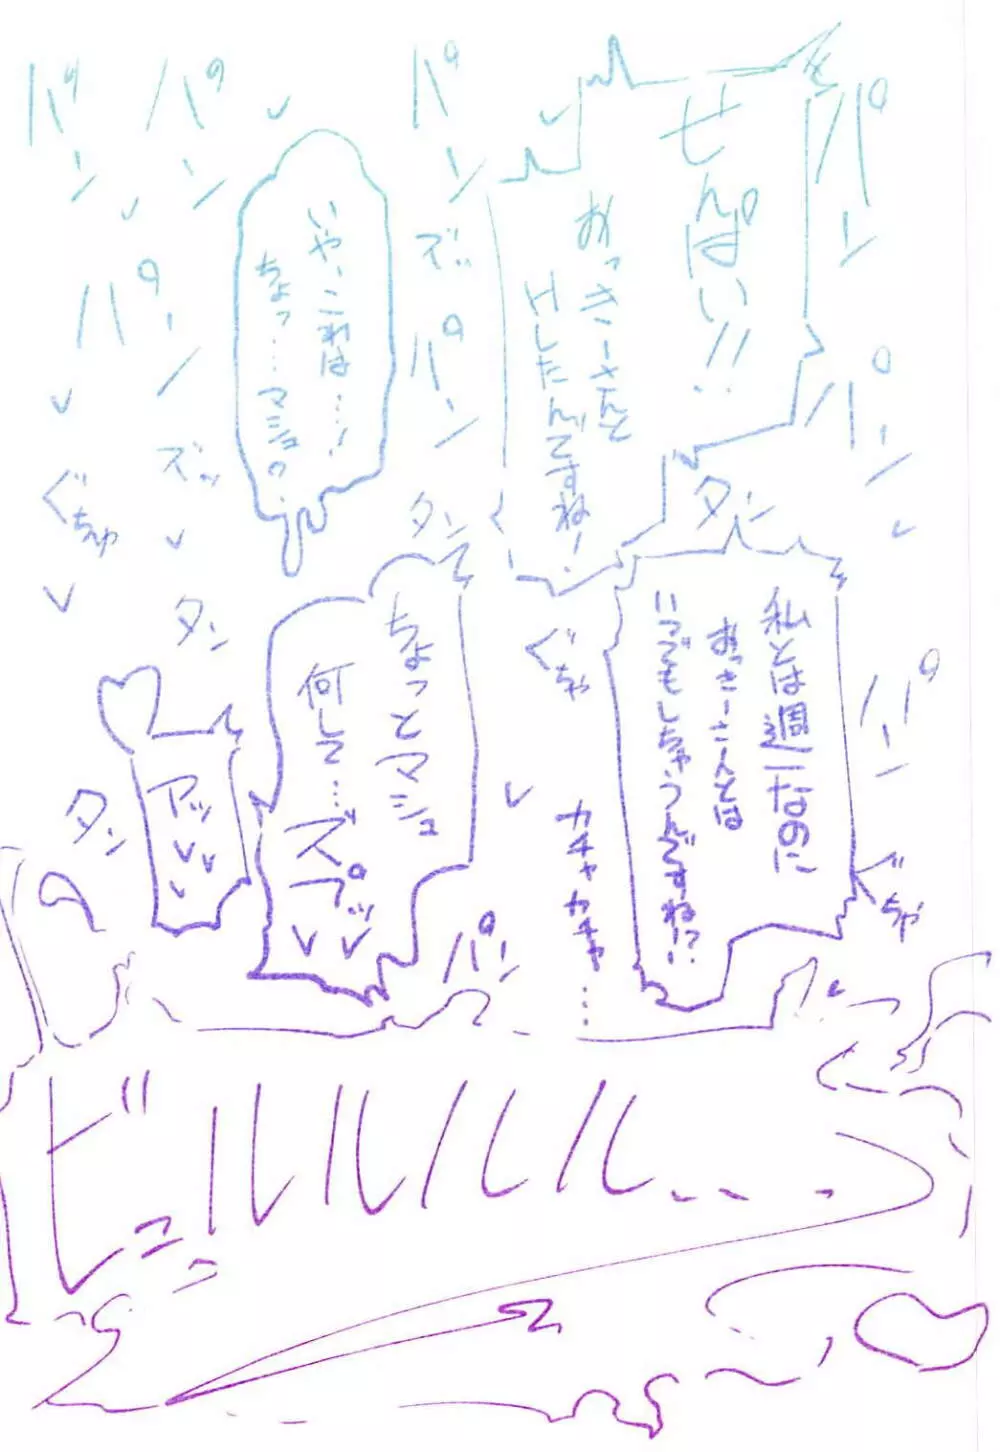 パン
せんぱい!!
おっきーさんと
Hしたんですね!
パン
パン
ズッ
パン
タン
いや、これは…!
ちょっ…マシュ?
パン
ズッ
パン
パン
ぐちゅ
タン
パン
タン
私とは週一なのに
おっきーさんとは
いつでもしちゃうんですね!?
ぐちゃ
ぐちゃ
カチャカチャ…
ちょっとマシュ
何して…ズプッ
パン
アッ
タン
ビュルルルル…